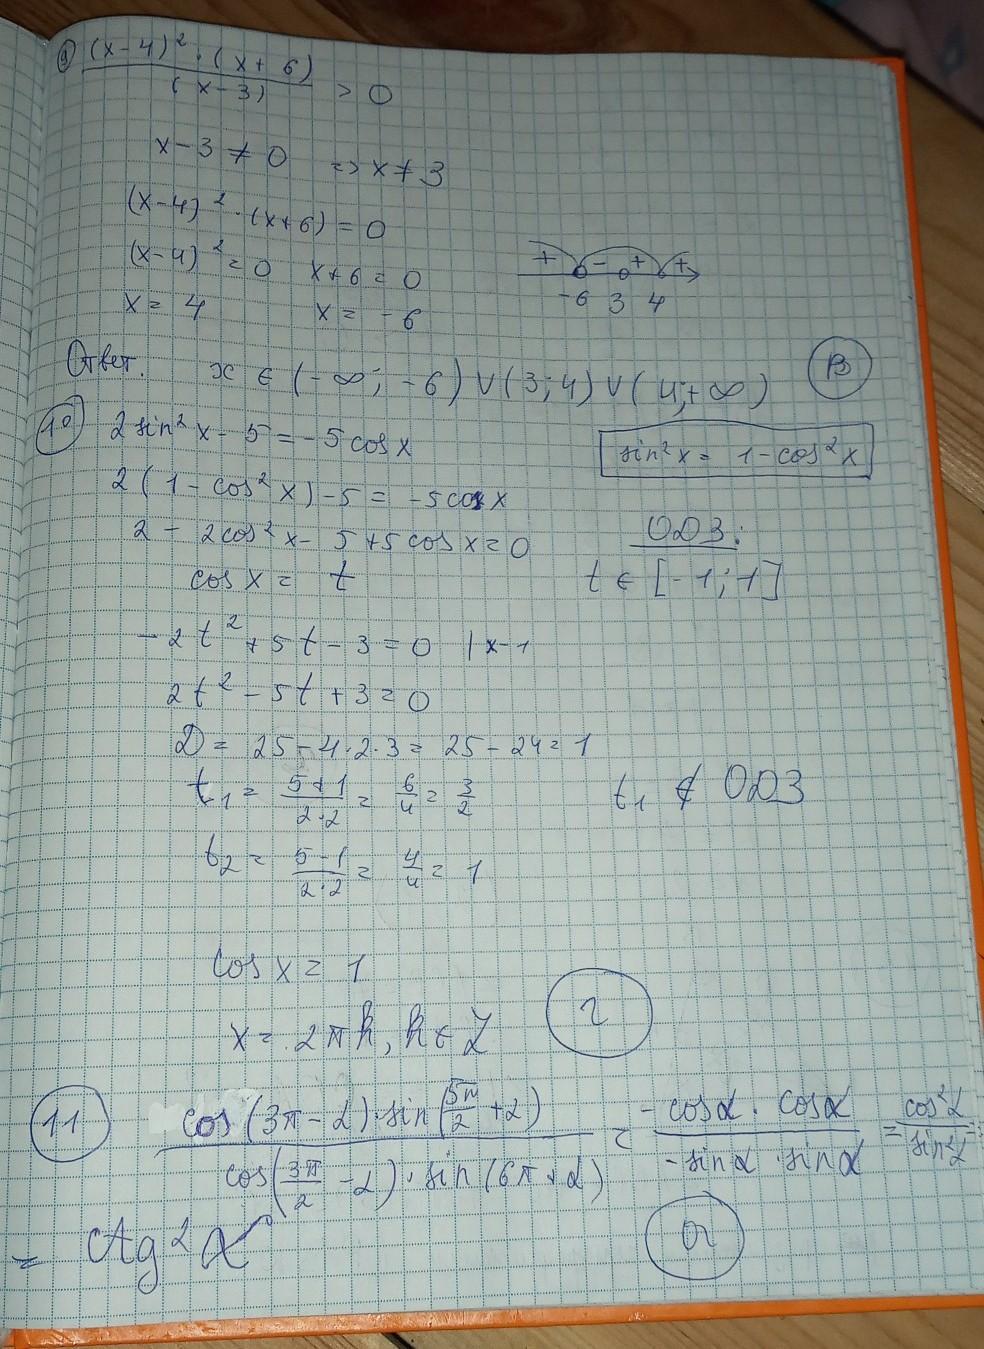 9) (x-4)² · (x+6) / (x-3) > 0
x-3 ≠ 0 => x ≠ 3
(x-4)² · (x+6) = 0
(x-4)² = 0 x+6 = 0
x = 4 x = -6
+ - + +
-6 3 4
Ответ. x ∈ (-∞; -6) ∨ (3; 4) ∨ (4; +∞) В
10 2sin²x - 5 = -5cosx
sin²x = 1-cos²x
2(1-cos²x)-5 = -5cosx
2 - 2cos²x - 5 + 5cosx = 0
ОДЗ:
cosx = t t ∈ [-1; 1]
-2t² + 5t - 3 = 0 | x-1
2t² - 5t + 3 = 0
D = 25 - 4·2·3 = 25 - 24 = 1
t₁ = (5+1)/(2·2) = 6/4 = 3/2 t₁ ∉ ОДЗ
t₂ = (5-1)/(2·2) = 4/4 = 1
cosx = 1
x = 2πk, k ∈ Z г
11 cos(3π-α)·sin(5π/2+α) / cos(3π/2-α)·sin(6π+α) = -cosα·cosα / -sinα·sinα = cos²α / sin²α =
= ctg²α а